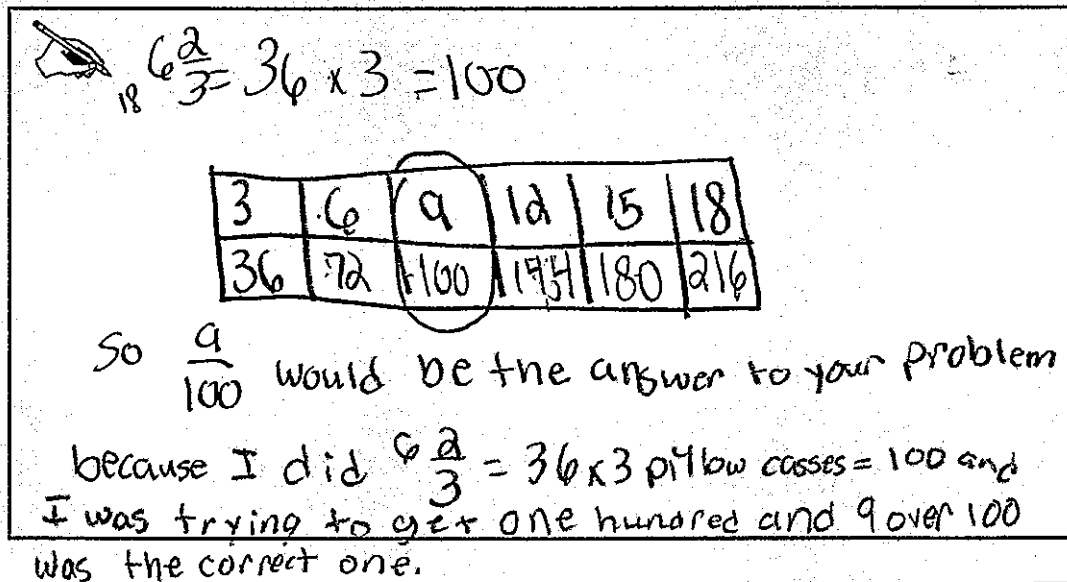 18 6 2/3 = 36 x 3 = 100
3 6 9 12 15 18
36 72 100 180 216
So 9/100 would be the answer to your problem
because I did 6 2/3 = 36 x 3 pillow casses = 100 and
I was trying to get one hundred and 9 over 100
was the correct one.